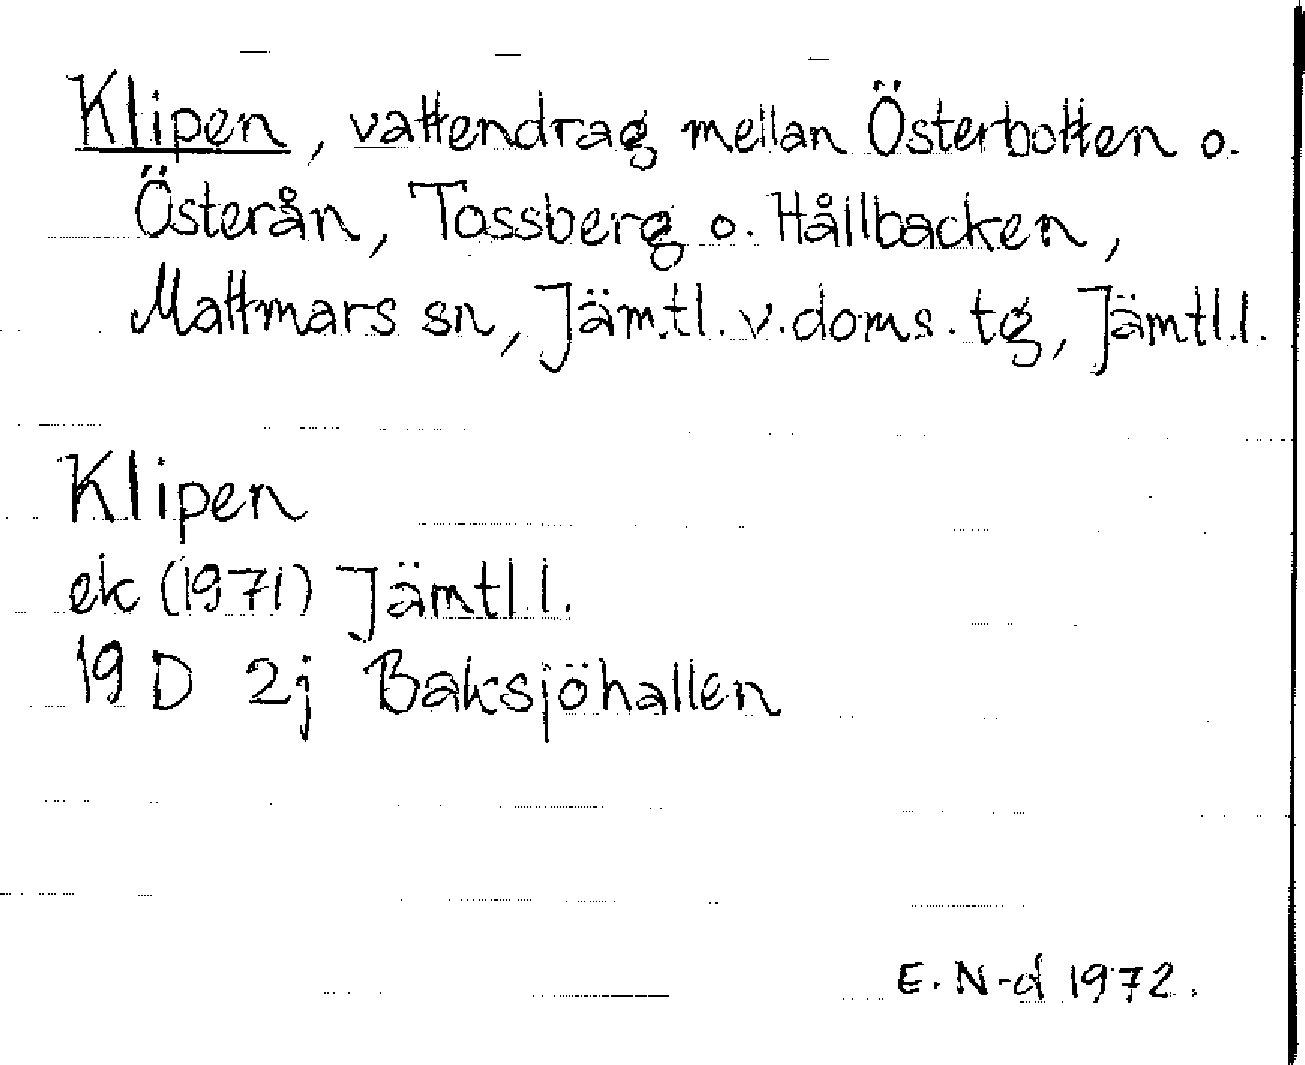 Klipen, vattendrag mellan Österbotten o.
Österån, Tossberg o. Hållbacken,
Mattmars sn, Jämtl. v. doms. tg, Jämtl.l.
Klipen
ek (1971) Jämtl.l.
19 D 2j Baksjöhallen
E. N-d 1972.